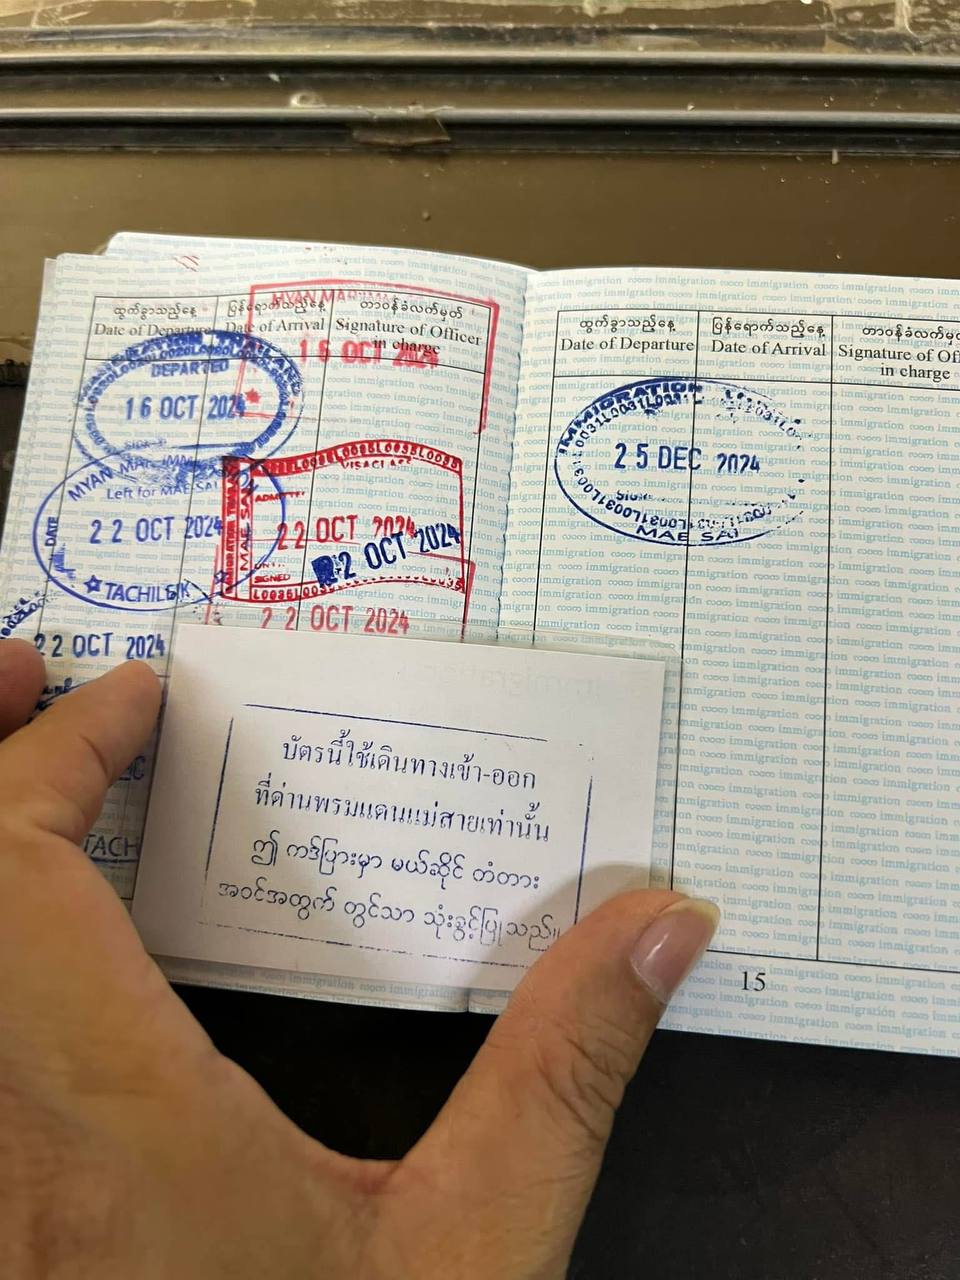 ထွက်ခွာသည့်နေ့ ပြန်ရောက်သည့်နေ့ တာဝန်ခံလက်မှတ်
Date of Departure Date of Arrival Signature of Officer
in charge
MYANMAR
16 OCT 2024
DEPARTED
16 OCT 2024
MYANMAR
Left for MAE SAI
DATE
22 OCT 2024
TACHILEIK
L0035L0035L0035
MAE SAI
22 OCT 2024
22 OCT 2024
SIGNED
22 OCT 2024
22 OCT 2024
TACH
บัตรนี้ใช้เดินทางเข้า-ออก
ที่ด่านพรมแดนแม่สายเท่านั้น
ဤ ကဒ်ပြားမှာ မယ်ဆိုင် တံတား
အဝင်အတွက် တွင်သာ သုံးခွင့်ပြုသည်။
ထွက်ခွာသည့်နေ့ ပြန်ရောက်သည့်နေ့ တာဝန်ခံလက်မှတ်
Date of Departure Date of Arrival Signature of
in charge
IMMIGRATION
25 DEC 2024
MAE SAI
15